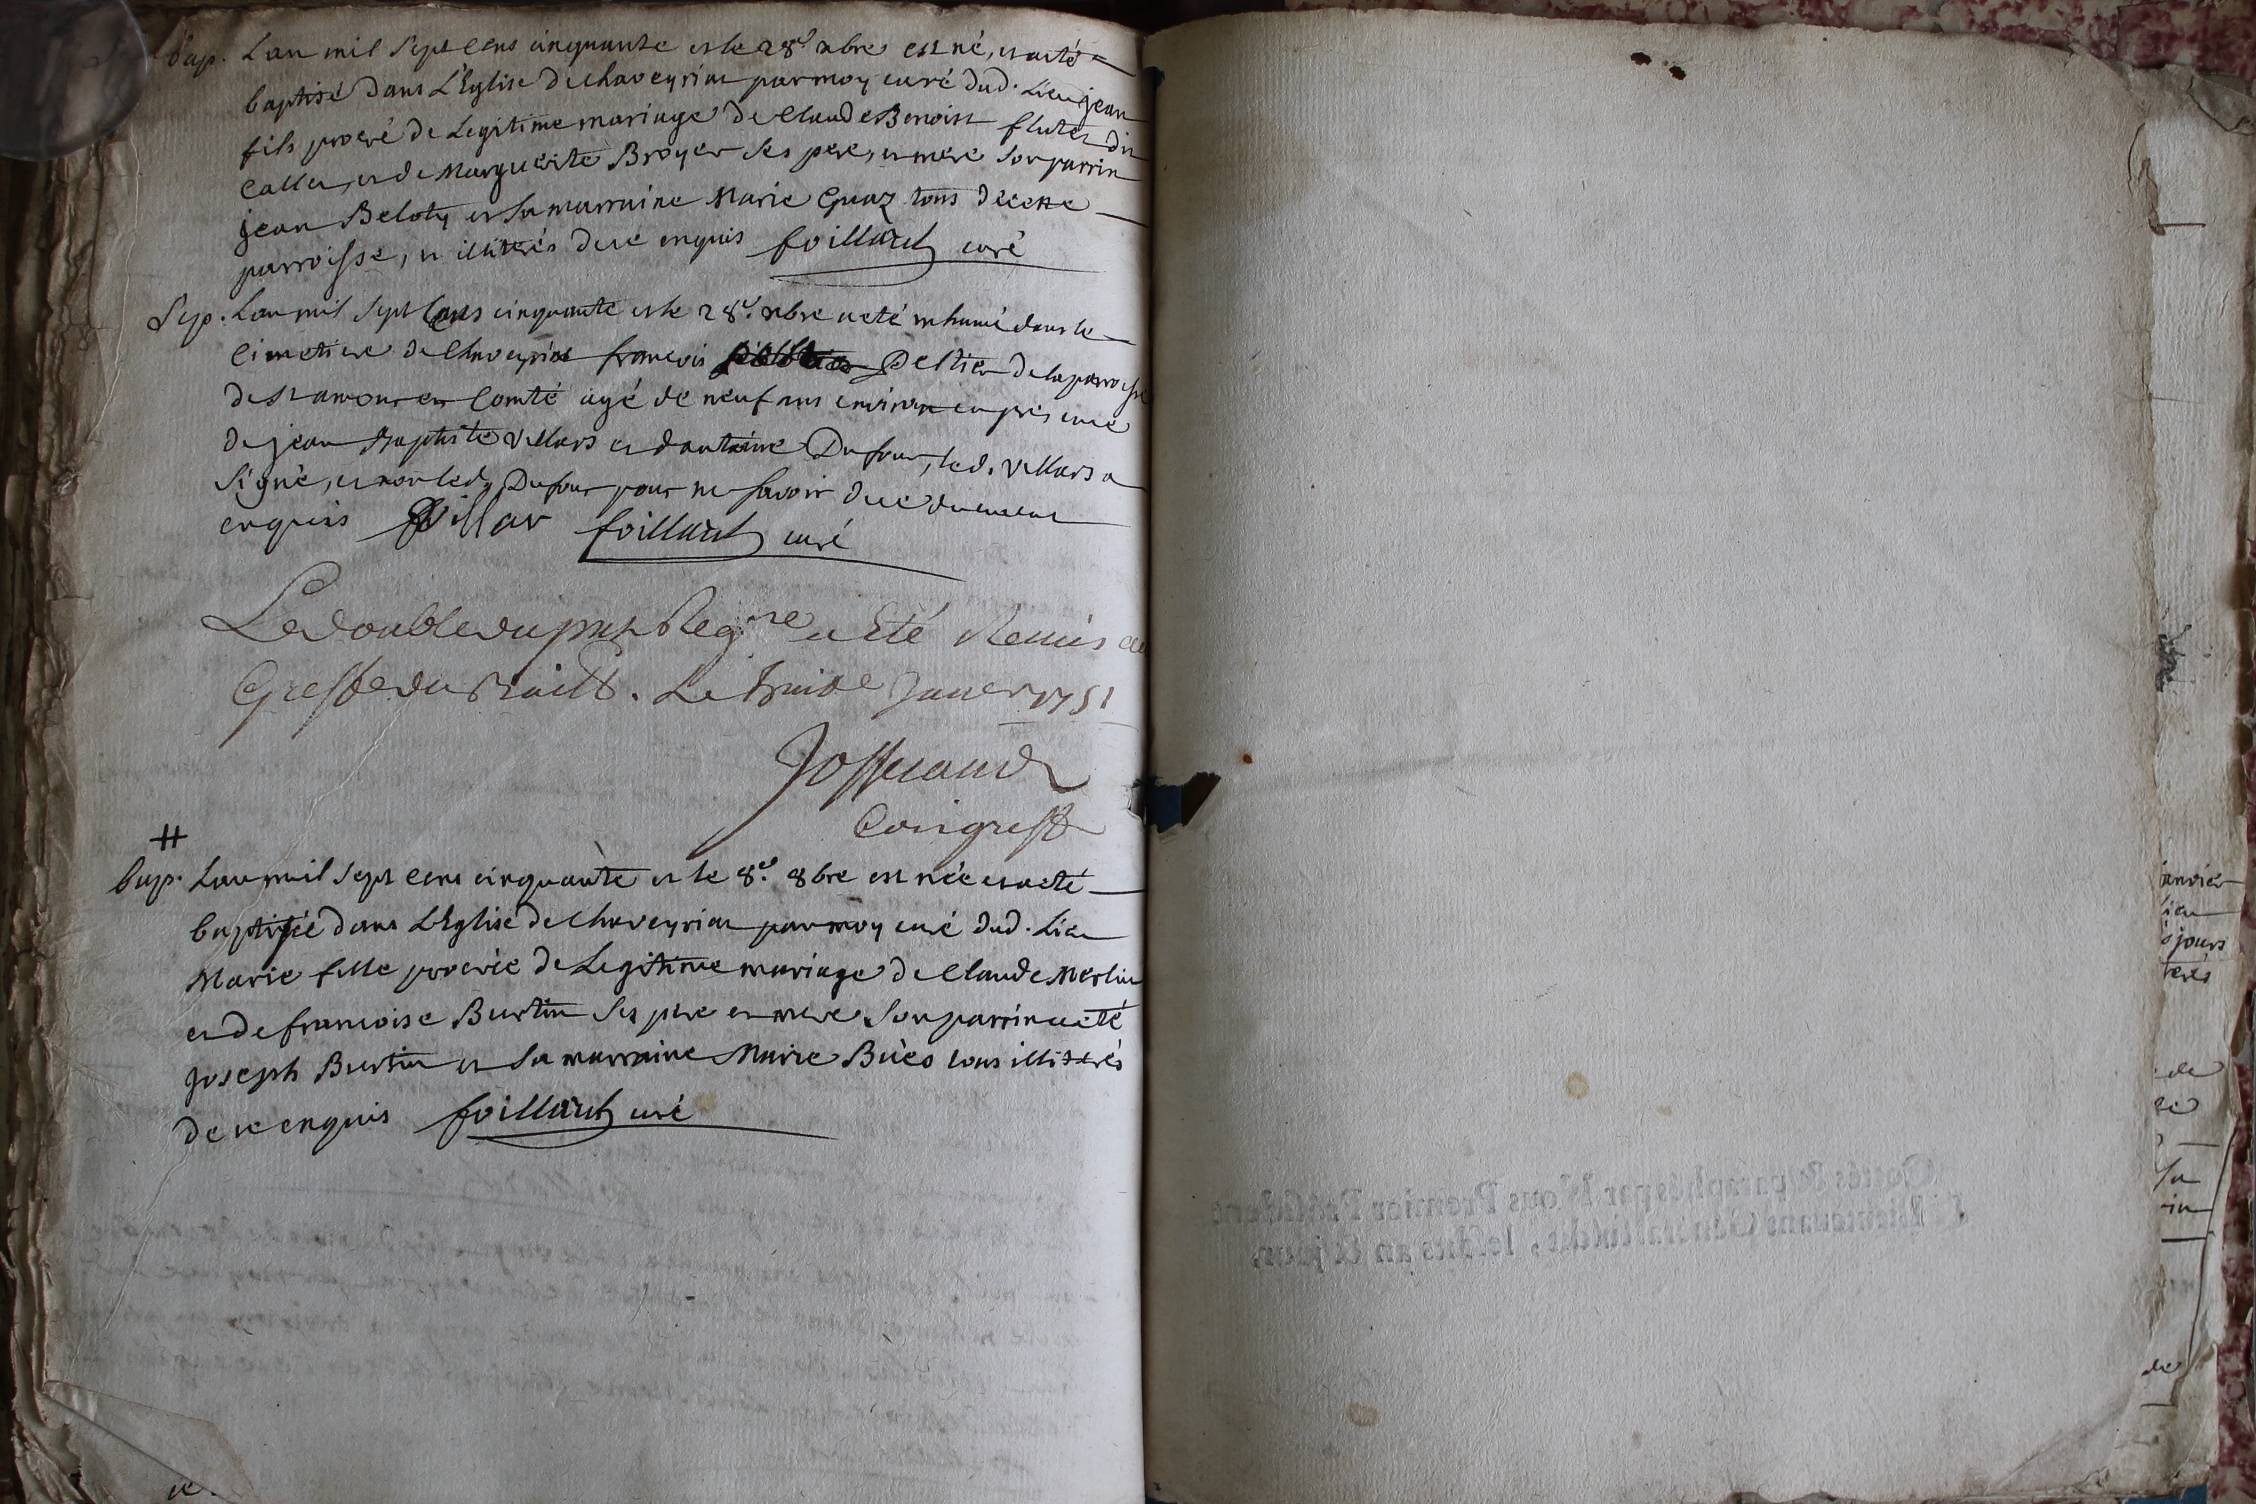 bap. L'an mil sept cens cinquante et le 28e nbre est né, et a eté
baptisé dans L'Eglise de Chaveyriat par moy curé dud. Lieu jean
fils procréé de Legitime mariage de Claude Benoist flutet dit
et de Marguerite Broyer ses pere, et mere son parrin
jean Beloty et sa marraine Marie Guaz tous de cette
parroisse, et illiterés de ce enquis foillard curé
Sep. L'an mil sept cens cinquante et le 28e. nbre a eté inhumé dans le
Cimetiere de Chaveyriat francois Peltier de la parroisse
de st amour en Comté agé de neuf ans environ en presence
de jean Baptiste Villars et d'antoine Dufour, led. Villars a
signé, et non led. Dufour pour ne savoir de ce duement
enquis Villar foillard curé
Le double du pnt Regre a Eté Remis au
Greffe du Bailli. Le Janer 1751
Josserand
Comgreff
bap. L'an mil sept cens cinquante et le 8e. 8bre est née et a eté
baptisée dans L'Eglise de Chaveyriat par moy curé dud. Lieu
Marie fille procréée de Legitime mariage de Claude Merlin
et de francoise Burtin ses pere et mere son parrin a eté
Joseph Burtin et sa marraine Marie tous illiterés
de ce enquis foillard curé
Cottés & paraphés par Nous Premier President
& Lieutenant Général susdit, lesdits an & jour.
janvier
lieu
jours
terés
de
sa
rin
de